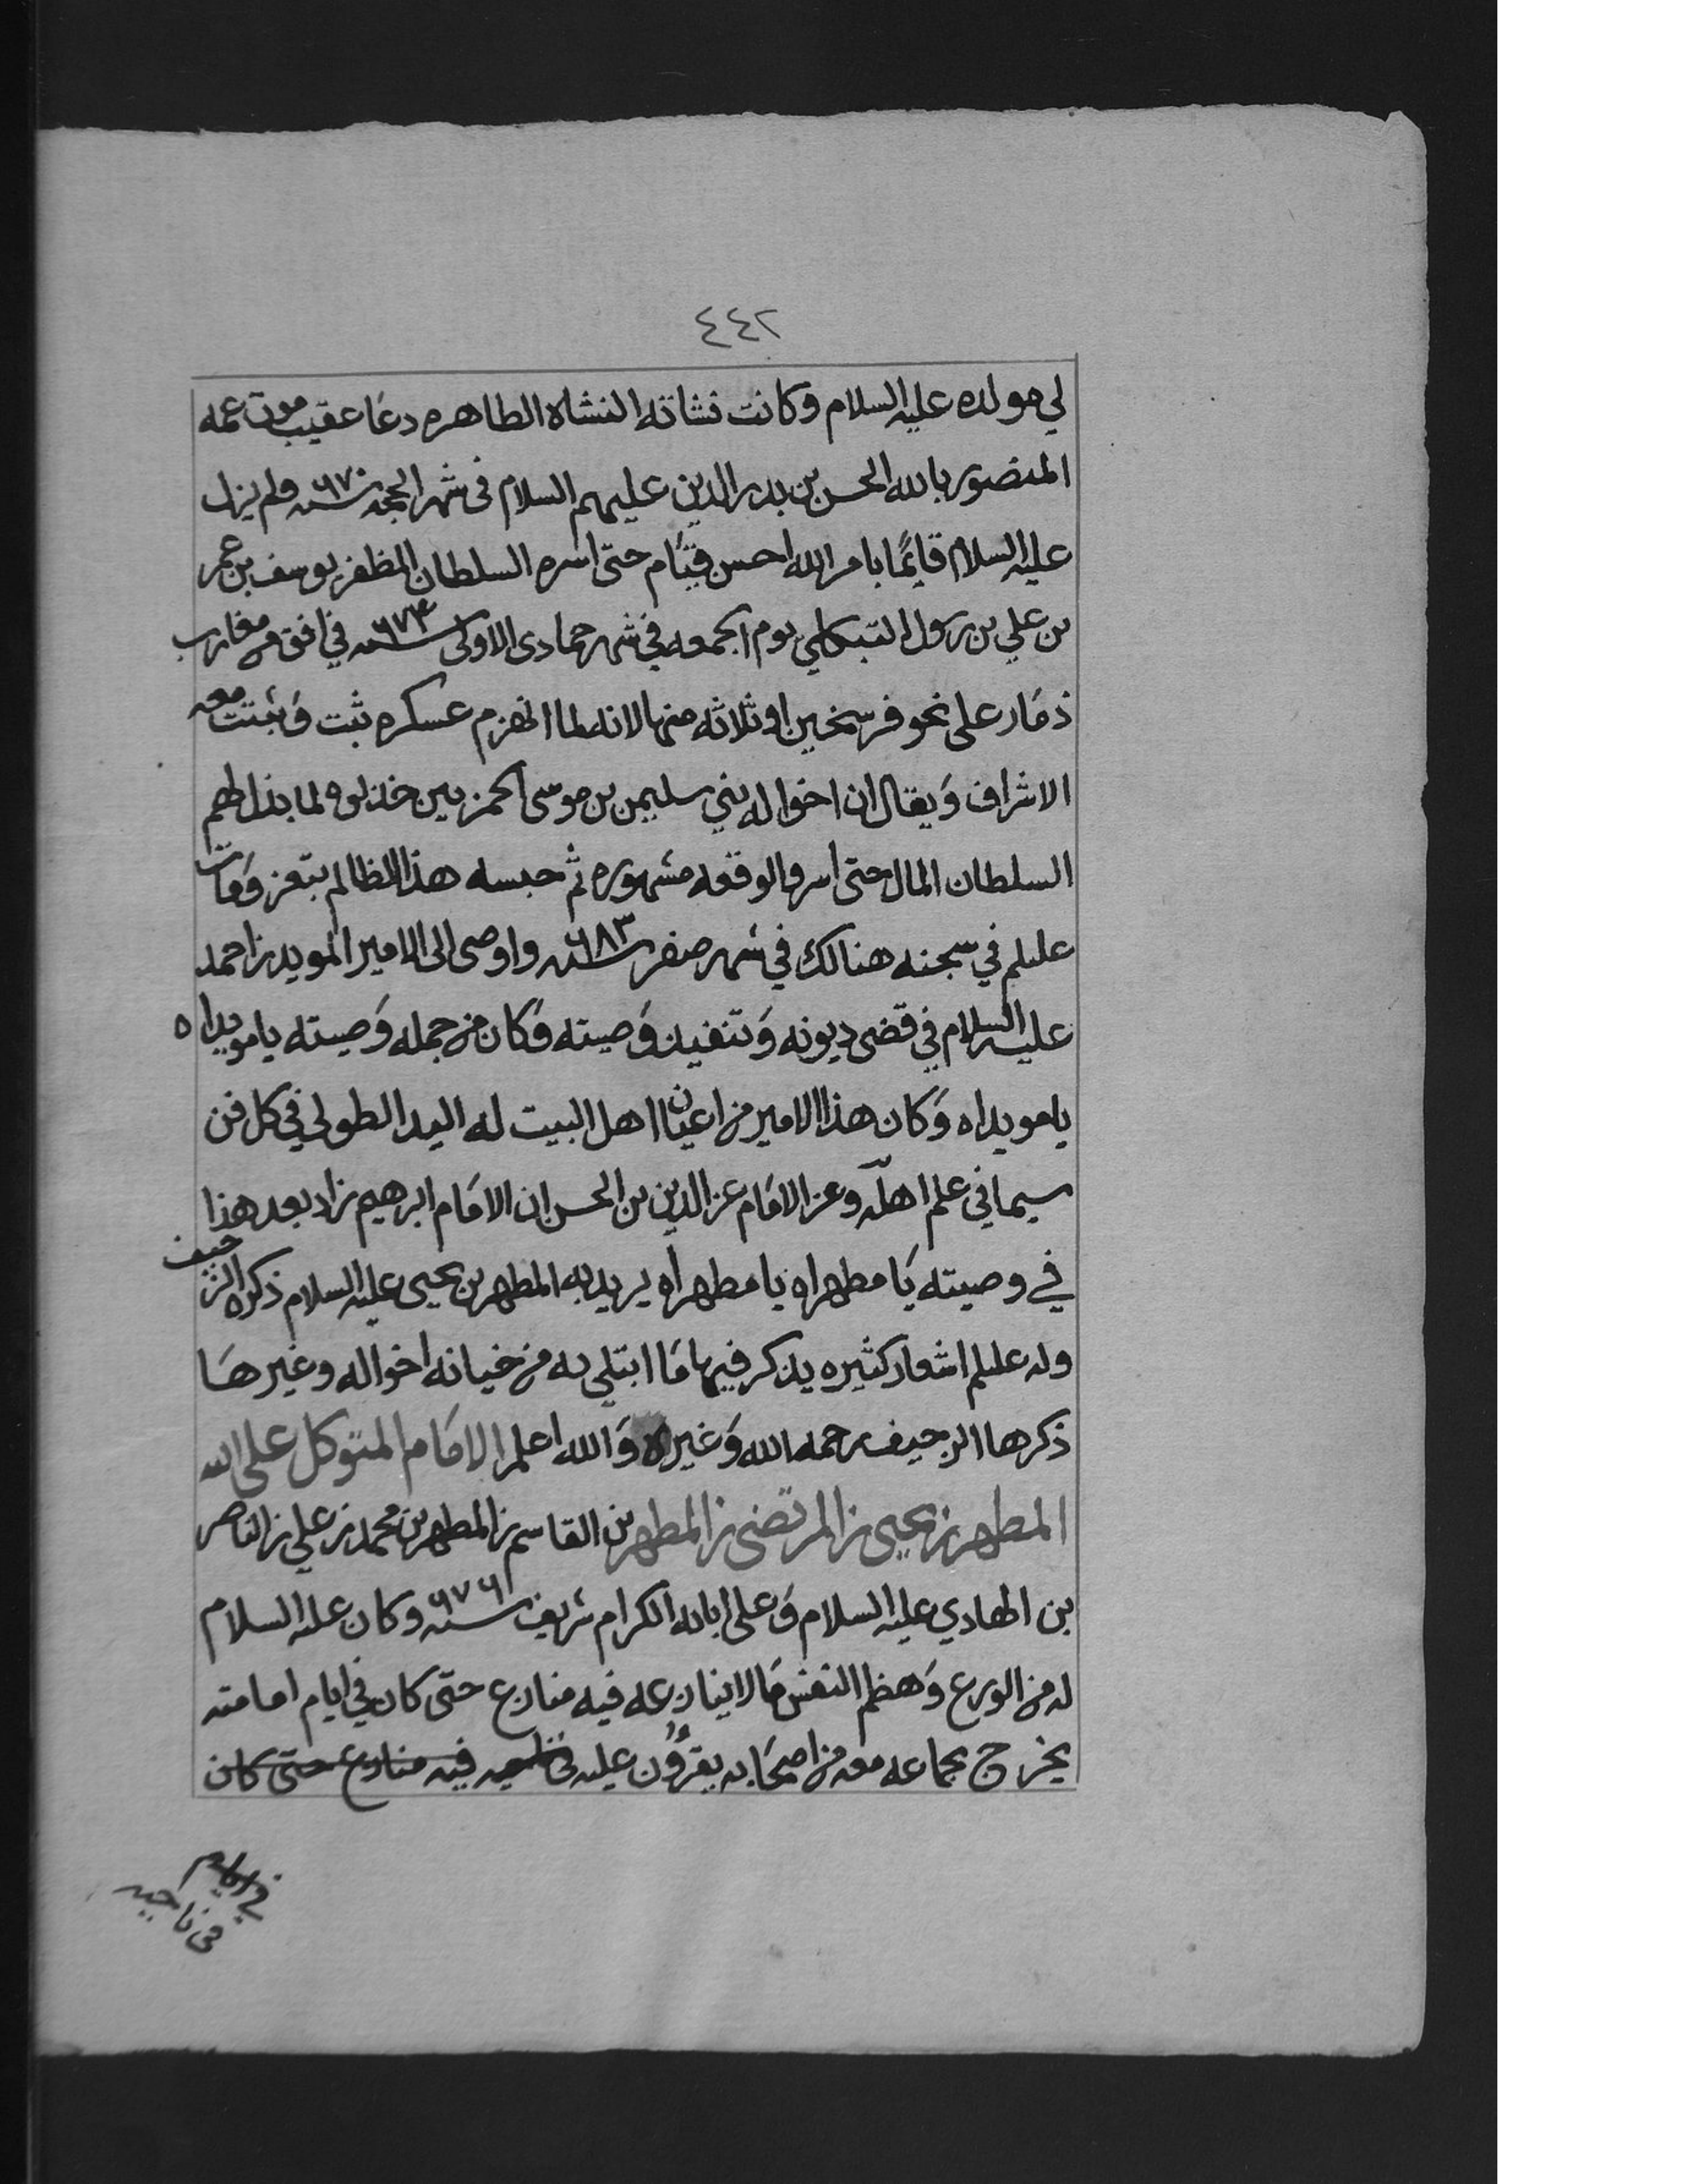 ٤٤٢
لي مولده عليه السلام وكانت نشاته النشاة الطاهره دعا عقيب موت عمه
المنصور بالله الحسن بن بدر الدين عليهم السلام فى شهر الحجه سنه ٦٧٠ ولم يزل
عليه السلام قايمًا بامر الله احسن قيام حتى اسره السلطان المظفر يوسف بن عمر
بن علي بن رسول يوم الجمعه في شهر جمادى الاولى سنه ٦٧٤ في افق من مغارب
ذمار على نحو فرسخين او ثلاثه منها لانه لما انهزم عسكره ثبت وثبتت معه
الاشراف ويقال ان اخواله بني سليمن بن موسى الحمزيين خذلوه لما بذل لهم
السلطان المال حتى أسر والوقعه مشهوره ثم حبسه هذا الظالم بتعز ومات
عليلم في سجنه هنالك في شهر صفر سنه ٦٨٣ واوصى الى الامير المويد بن احمد
عليه السلام في قضى ديونه وتنفيذ وصيته وكان من جمله وصيته يا مويداه
يا مويداه وكان هذا الامير من اعيان اهل البيت له اليد الطولى في كل فن
سيما في علم اهلّه وعن الامام عز الدين بن الحسن ان الامام ابرهيم زاد بعد هذا
في وصيته يا مطهراه يا مطهراه يريد به المطهر بن يحيى عليه السلام ذكره الزحيف
وله عليلم اشعار كثيره يذكر فيها ما ابتلي به من خيانه اخواله وغيرها
ذكرها الزحيف رحمه الله وغيره والله اعلم الامام المتوكل على الله
المطهر بن يحيى بن المرتضى بن المطهر بن القاسم بن المطهر بن محمد بن علي بن الناصر
بن الهادي عليه السلام وعلى ابائه الكرام سنه ٦٧٦ وكان عليه السلام
له من الورع وهظم النفس ما لا ينازعه فيه منازع حتى كان في ايام امامته
يخرج بجماعه معه من اصحابه يقرؤن عليه فيه منازع حتى كان
في ايام
في ناحيه